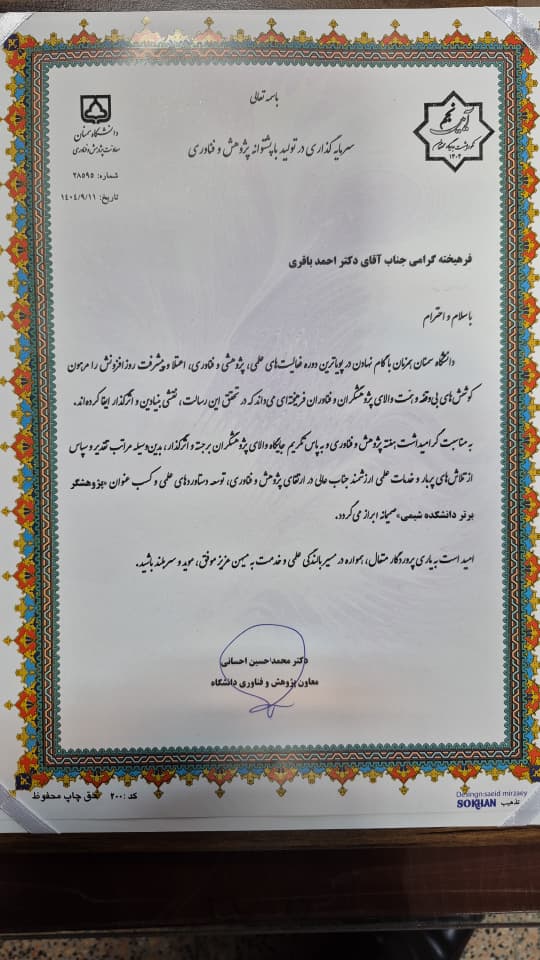 باسمه تعالی
سرمایه گذاری در تولید با پشتوانه پژوهش و فناوری
دانشگاه سمنان
معاونت پژوهش و فناوری
شماره: ۲۸۵۹۵
تاریخ: ۱۴۰۴/۹/۱۱
آیین
۱۴۰۴
فرهیخته گرامی جناب آقای دکتر احمد باقری
با سلام و احترام
دانشگاه سمنان همزمان با گام نهادن در پویاترین دوره فعالیت‌های علمی، پژوهشی و فناوری، اعتلا و پیشرفت روزافزونش را مرهون
کوشش‌های بی‌وقفه و همت والای پژوهشگران و فناوران فرهیخته‌ای می‌داند که در تحقق این رسالت، نقشی بنیادین و اثرگذار ایفا کرده‌اند.
به مناسبت گرامیداشت هفته پژوهش و فناوری و به پاس تکریم جایگاه والای پژوهشگران برجسته و اثرگذار، بدین‌وسیله مراتب تقدیر و سپاس
از تلاش‌های پربار و خدمات علمی ارزشمند جناب عالی در ارتقای پژوهش و فناوری، توسعه دستاوردهای علمی و کسب عنوان «پژوهشگر
برتر دانشکده شیمی» صمیمانه ابراز می‌گردد.
امید است به یاری پروردگار متعال، همواره در مسیر بالندگی علمی و خدمت به میهن عزیز موفق، موید و سربلند باشید.
دکتر محمدحسین احسانی
معاون پژوهش و فناوری دانشگاه
کد: ۲۰۰ حق چاپ محفوظ
Desingn:saeid mirzaey
تذهیب SOKHAN